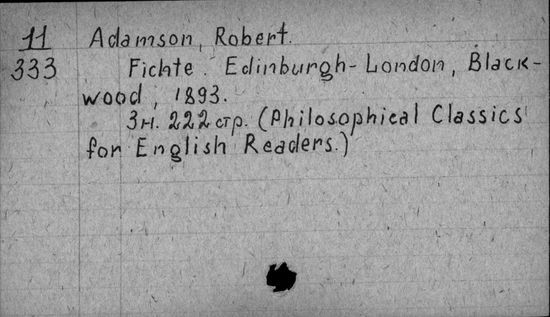 11 Adamson, Robert.
333 Fichte. Edinburgh-London, Black-
wood, 1893.
3н. 222 стр. (Philosophical Classics
for English Readers.)